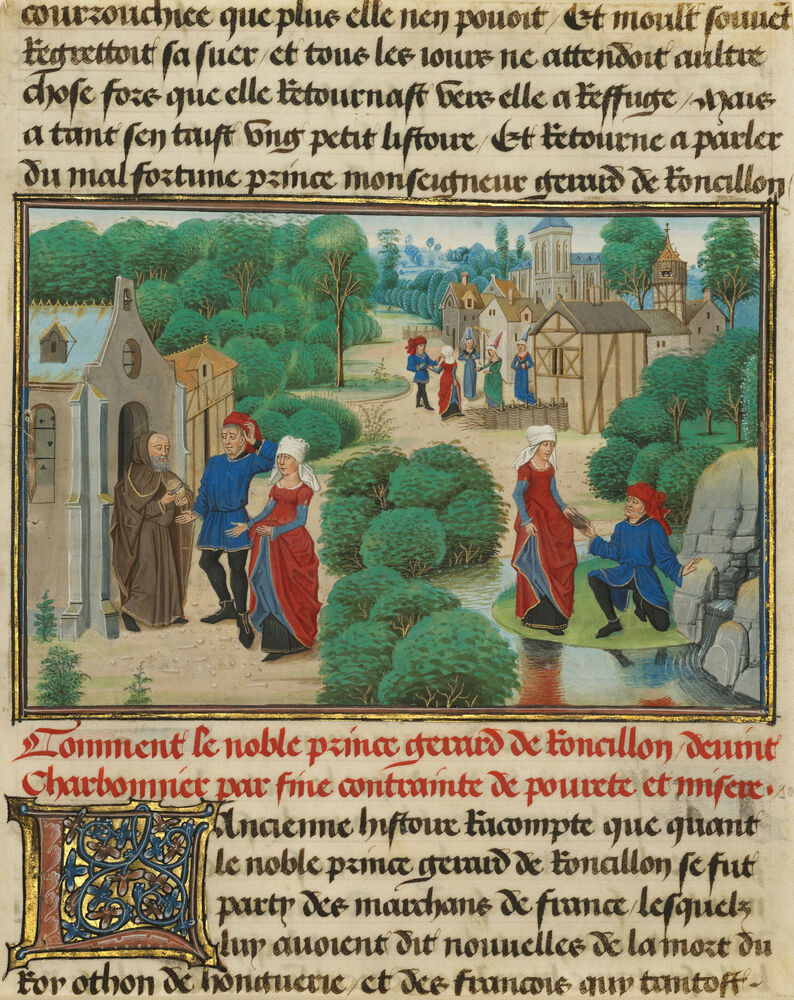 courrouchiee que plus elle nen pouoit / Et moult souuet
Regrettoit sa suer / et tous les iours ne attendoit aultre
chose fors que elle Retournast vers elle a Reffuge / Mais
a tant sen taist vng petit listoire / Et Retourne a parler
du mal fortune prince monseigneur gerard de Roncillon /
Comment le noble prince gerard de Roncillon / deuint
Charbonnier par fine contrainte de pourete et misere .
LAncienne histoire Racompte que quant
le noble prince gerard de Roncillon se fut
party des marchans de france / lesquelz
luy auoient dit nouuelles de la mort du
Roy othon de honguerie / et des francois quy tantost